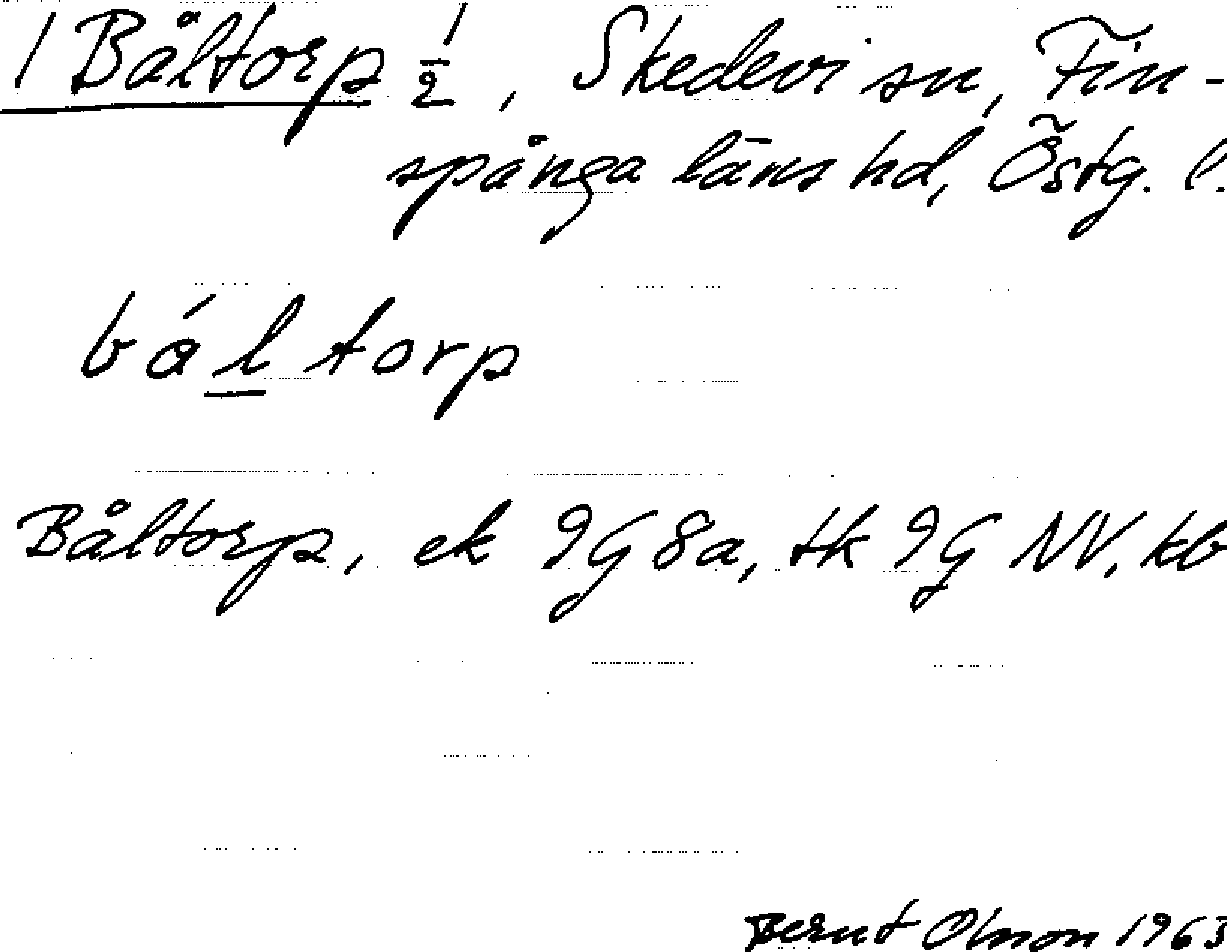 1 Båltorp 1/2, Skedevi sn, Fin-
spånga läns hd, Östg. l.
båltorp
Båltorp, ek 9G 8a, tk 9G NV, kb
Bernt Olsson 1963